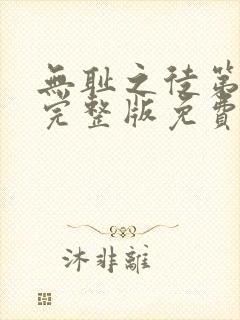 無耻之徒第
完整版免費
沐非離